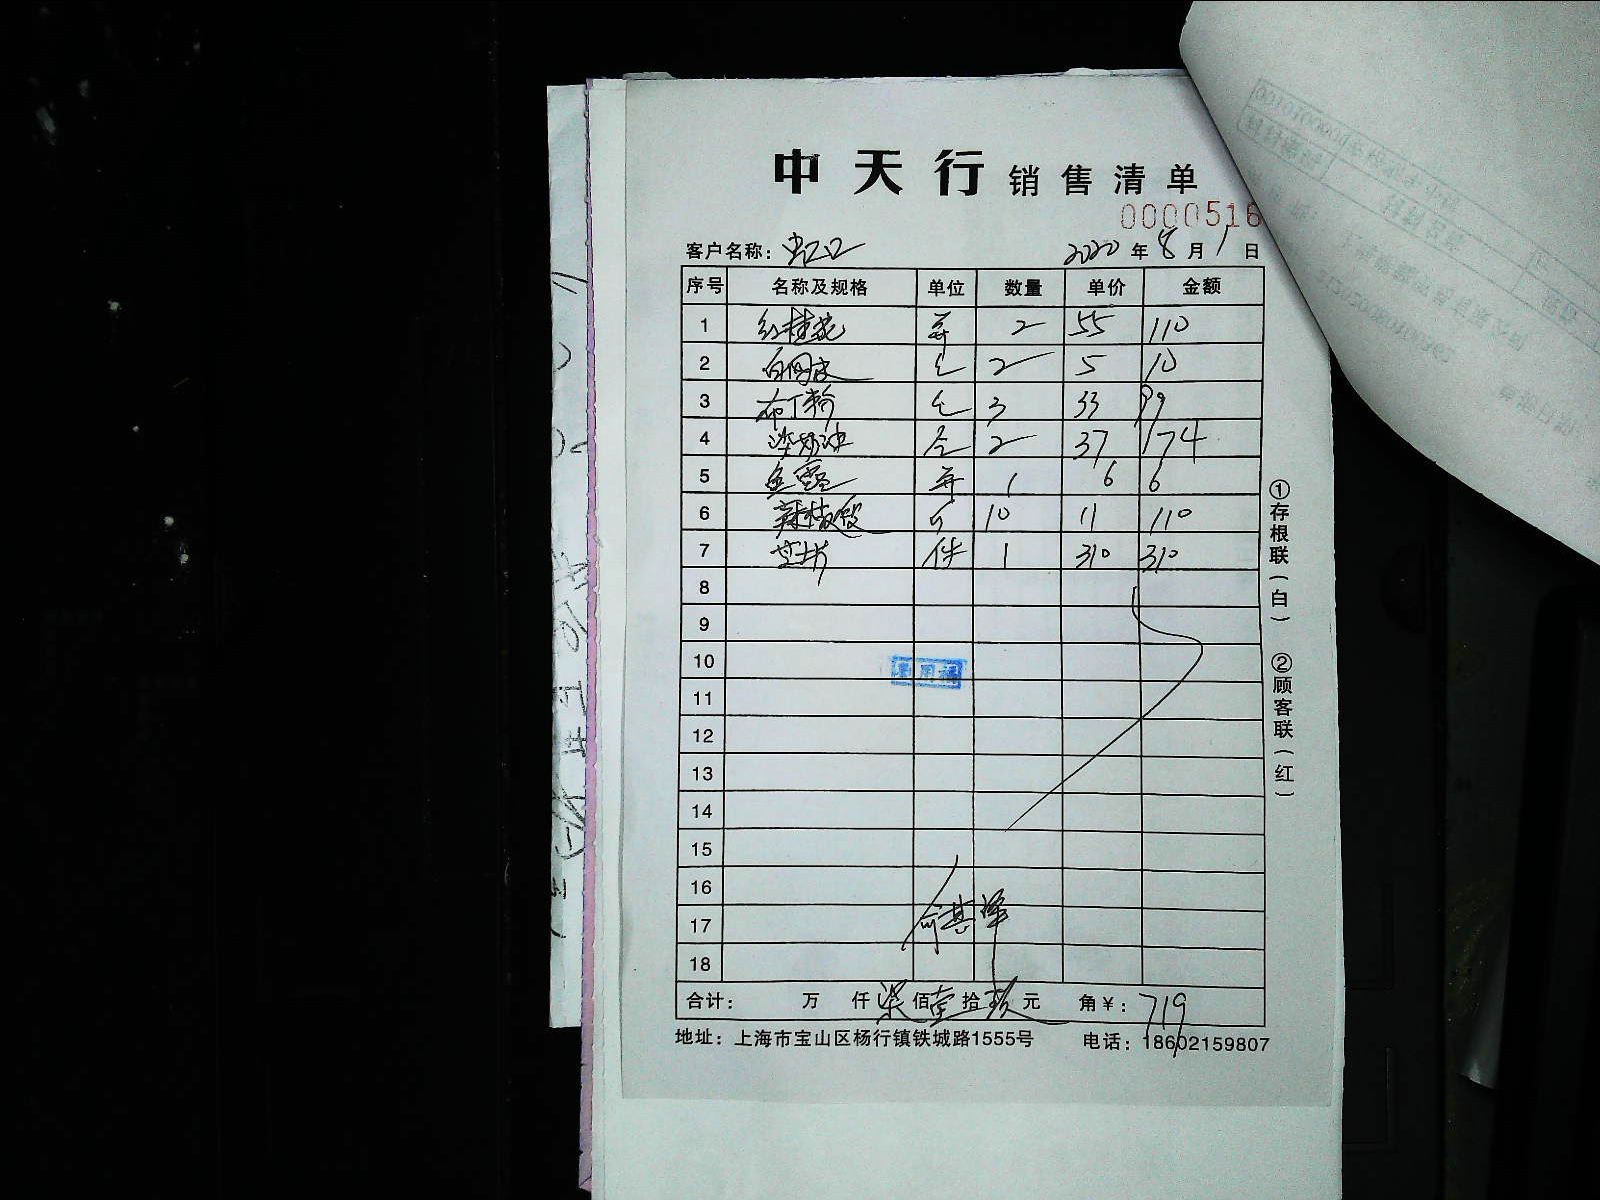 中天行 销售清单
0000516
客户名称: 虹口 2020 年 8 月 1 日
序号 名称及规格 单位 数量 单价 金额
1 红桂花 2 55 110
2 2 5 10
3 布丁粉 3 33 99
4 淡奶油 2 37 174
5 鱼露 1 6 6
6 辣椒 个 10 11 110
7 芝士片 件 1 310 310
8
9
10
11
12
13
14
15
16
17
18
合计: 万 仟 柒 佰 壹 拾 玖 元 角 ¥: 719
地址: 上海市宝山区杨行镇铁城路1555号 电话: 18602159807
①存根联(白) ②顾客联(红)